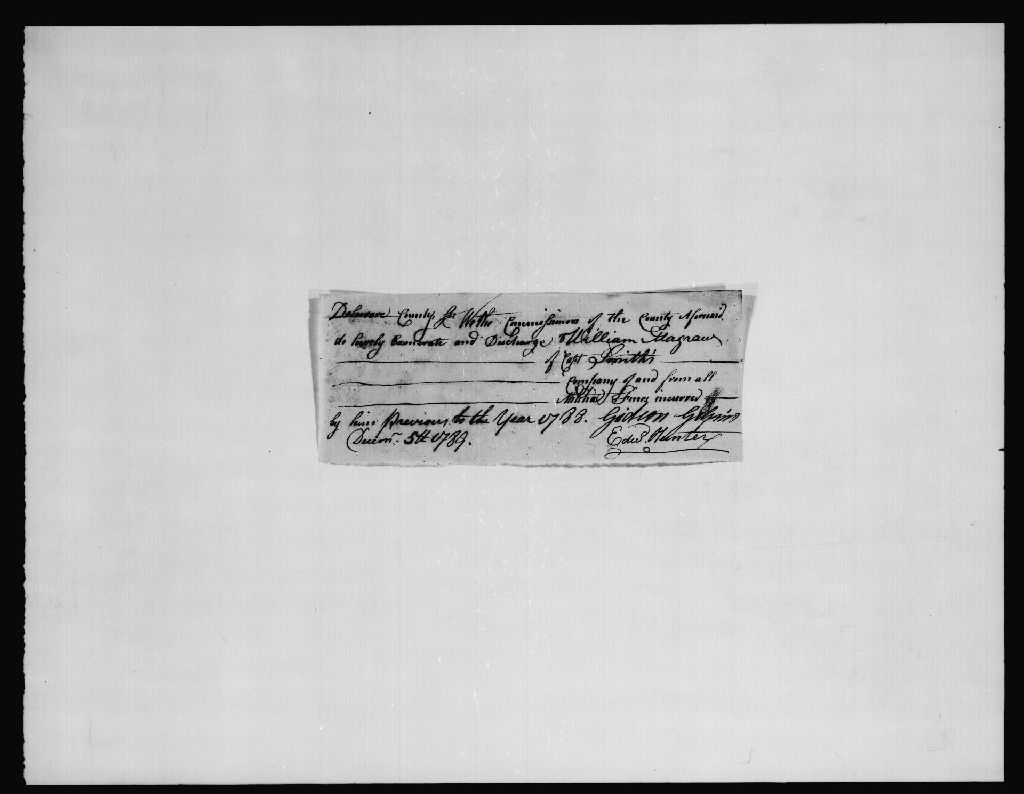 Delaware County Ss. We the Commissioners of the County Aforesaid
do hereby Exonerate and Discharge William Magraw
of Capt Smith's
Company of and from all
Militia Fines incurred
by him Previous to the Year 1788. Gideon Gilpin
Decem. 5th 1789. Edwd. Hunter